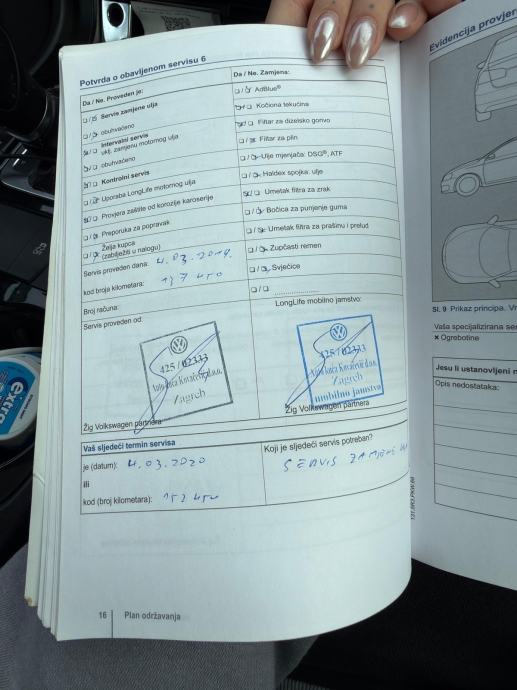 Potvrda o obavljenom servisu 6
Da / Ne. Proveden je:
Servis zamjene ulja
obuhvaćeno
Intervalni servis
uklj. zamjenu motornog ulja
obuhvaćeno
Kontrolni servis
Uporaba LongLife motornog ulja
Provjera zaštite od korozije karoserije
Preporuka za popravak
Želja kupca
(zabilježiti u nalogu)
Servis proveden dana: 4.03.2019.
kod broja kilometara:
Broj računa:
Servis proveden od:
425 / 02333
Auto kuća
Zagreb
Žig Volkswagen partnera
Da / Ne. Zamjena:
AdBlue®
Kočiona tekućina
Filtar za dizelsko gorivo
Filtar za plin
Ulje mjenjača: DSG®, ATF
Haldex spojka: ulje
Umetak filtra za zrak
Bočica za punjenje guma
Umetak filtra za prašinu i pelud
Zupčasti remen
Svjećice
LongLife mobilno jamstvo:
425 / 02333
Auto kuća
Zagreb
mobilno jamstvo
Žig Volkswagen partnera
Vaš sljedeći termin servisa
je (datum): 4.03.2020
ili
kod (broj kilometara):
Koji je sljedeći servis potreban?
SERVIS ZAMJENE
16 Plan održavanja
Evidencija provjer
Sl. 9 Prikaz principa.
Vaša specijalizirana
× Ogrebotine
Jesu li ustanovljeni
Opis nedostataka:
extra